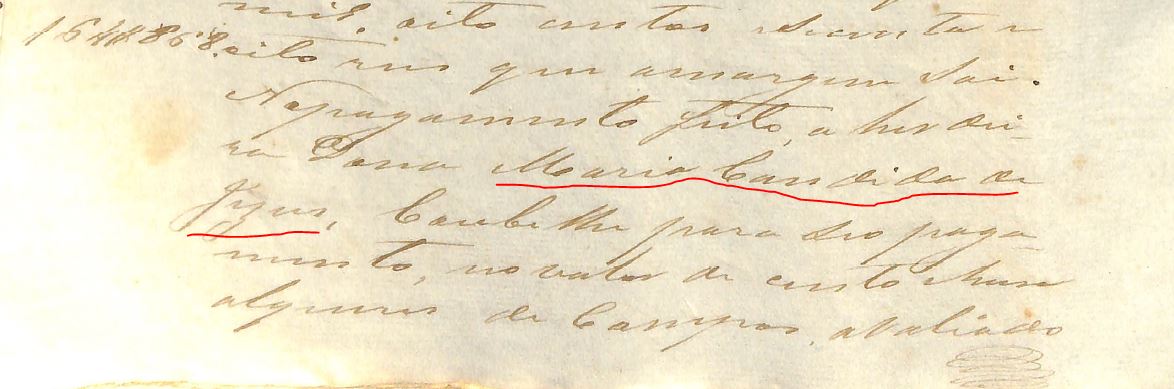 mil oito centos secenta e
164$868. oito reis que amargem Sai.
Apagamento feito, a herdei-
ra Dona Maria Candida de
Jezus, Coube lhe para seo paga-
mento, no valor de cento e huma
alqueires de Campos, avaliados